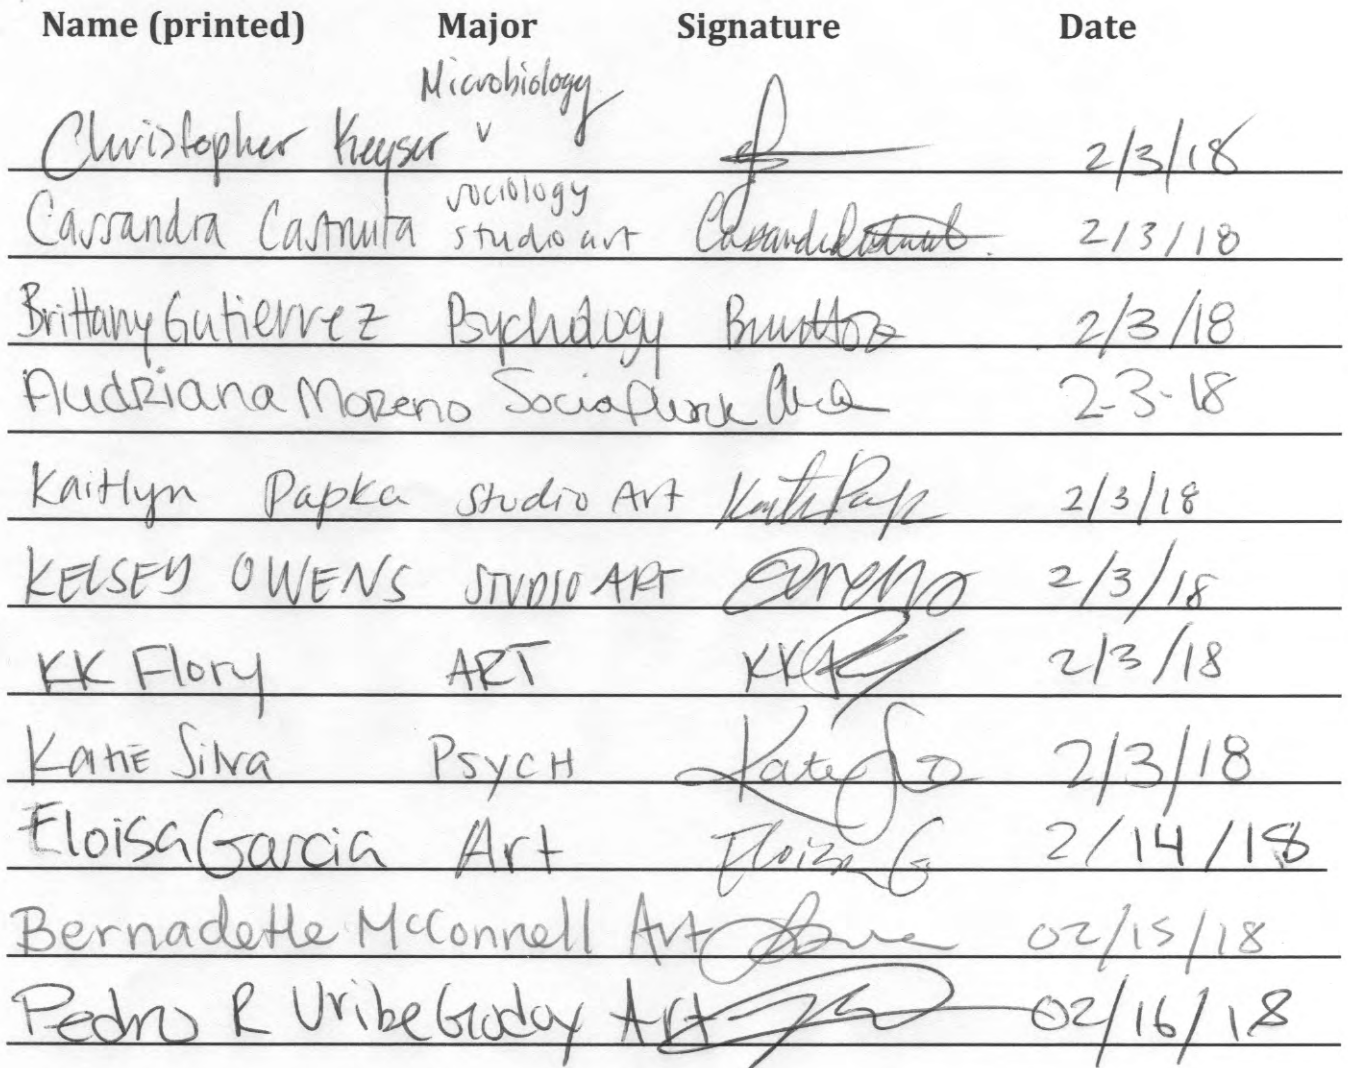 Name (printed) Major Signature Date
Microbiology
Christopher Keyser 2/3/18
sociology
Cassandra studio art 2/3/18
Brittany Gutierrez Psychology 2/3/18
Audriana Moreno Social Work 2-3-18
Kaitlyn Papka Studio Art 2/3/18
KELSEY OWENS STUDIO ART 2/3/18
KK Flory ART KK 2/3/18
Katie Silva PSYCH 2/3/18
Eloisa Garcia Art Eloisa G 2/14/18
Bernadette McConnell Art 02/15/18
Pedro R Uribe Godoy Art 02/16/18